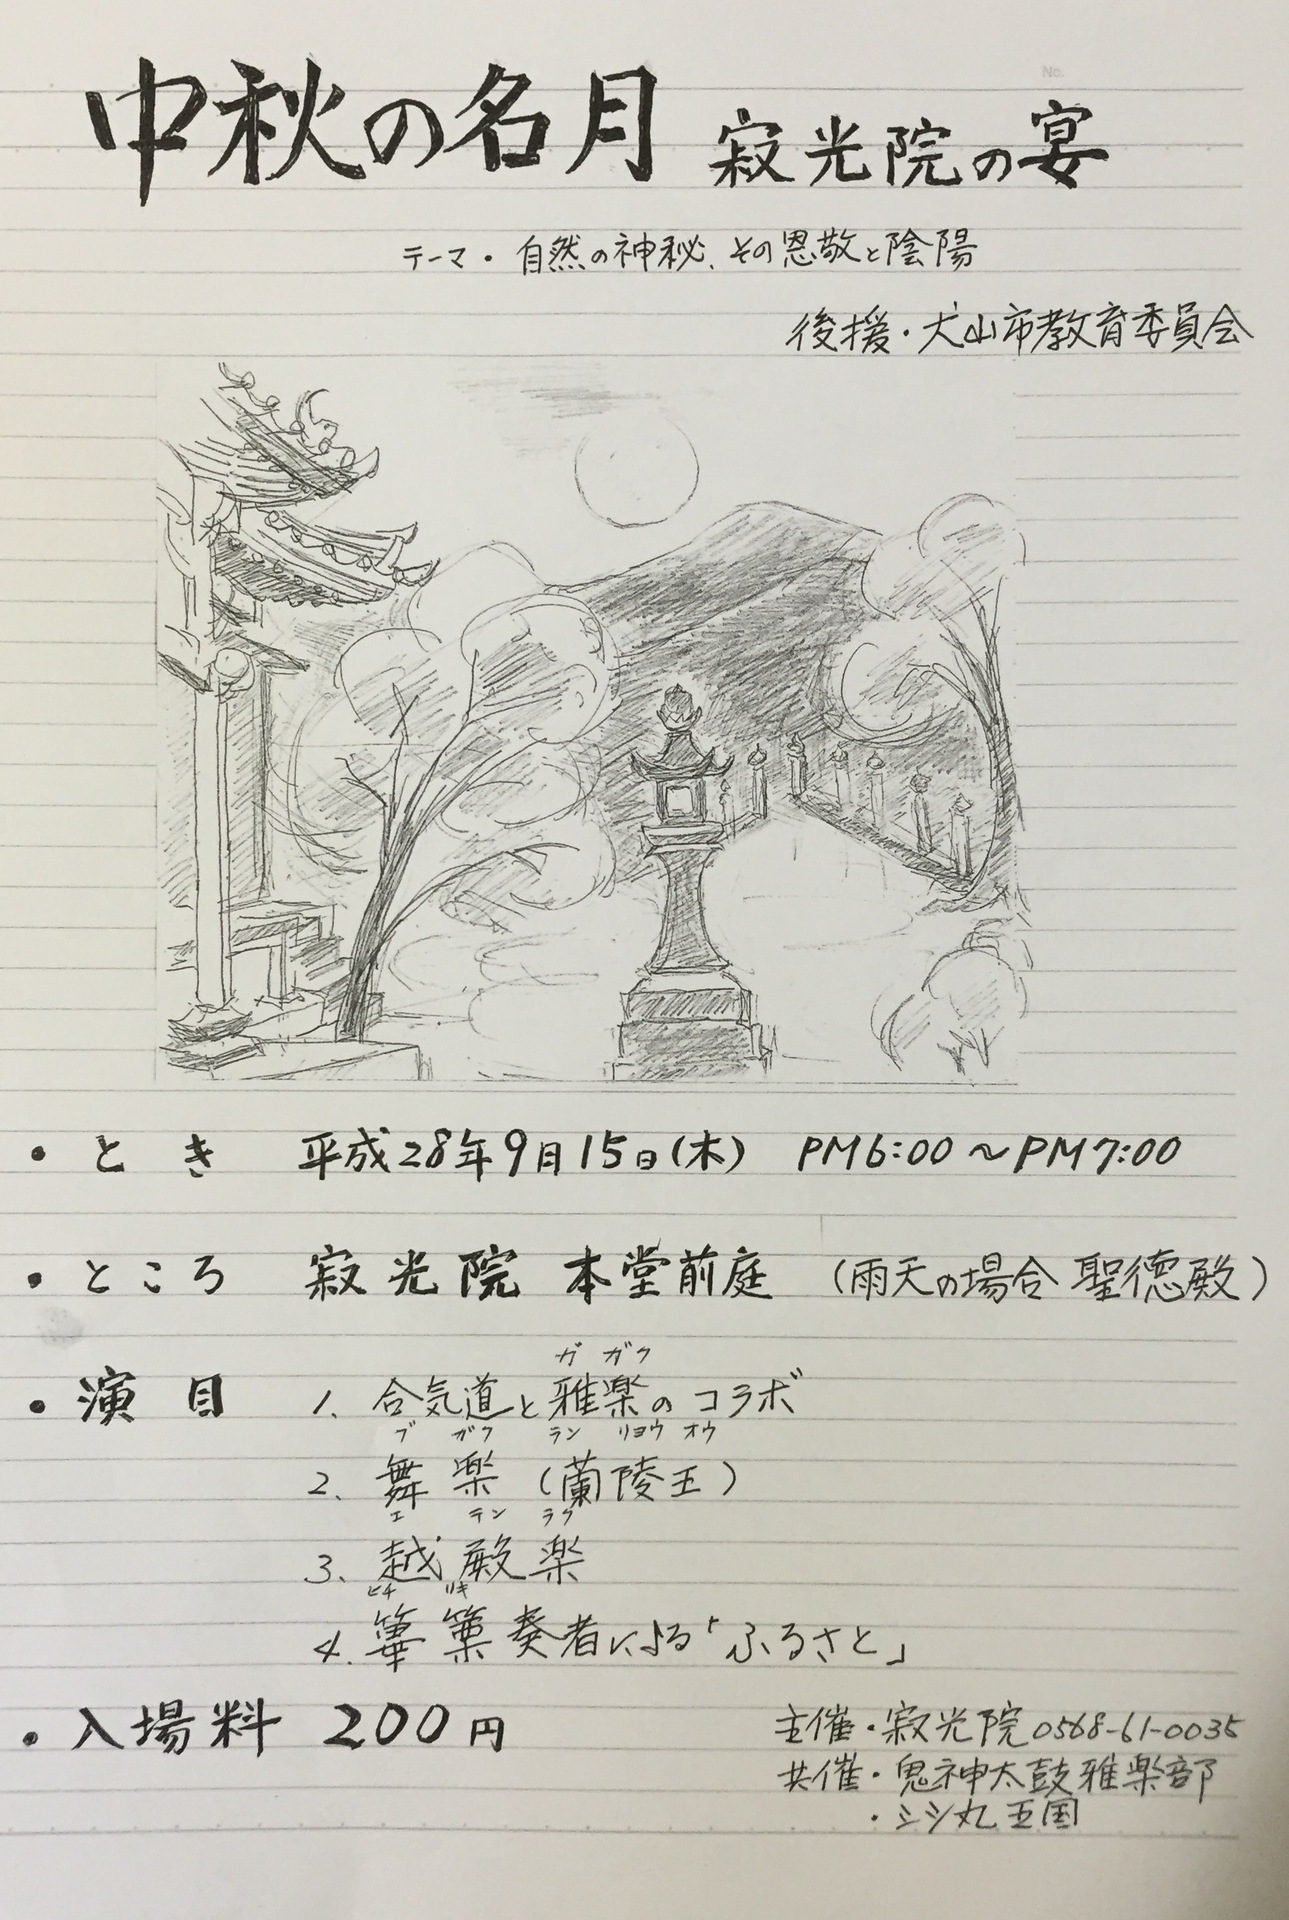 No.
中秋の名月 寂光院の宴
テーマ・自然の神秘、その恩敬と陰陽
後援・犬山市教育委員会
・とき 平成28年9月15日(木) PM6:00〜PM7:00
・ところ 寂光院 本堂前庭 (雨天の場合 聖徳殿)
ガ ガク
・演目 1. 合気道と雅楽のコラボ
ブ ガク ラン リョウ オウ
2. 舞楽 (蘭陵王)
エ テン ラク
3. 越殿楽
ヒチ リキ
4. 篳篥奏者による「ふるさと」
・入場料 200円
主催・寂光院0568-61-0035
共催・鬼神太鼓雅楽部
・シシ丸王国